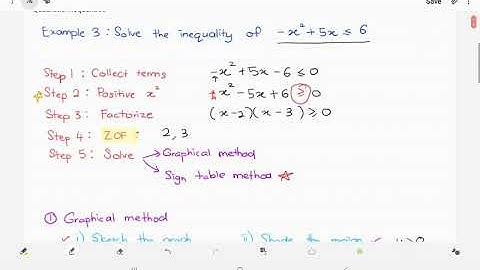 Save
Example 3 : Solve the inequality of -x² + 5x ≤ 6
Step 1 : Collect terms -x² + 5x - 6 ≤ 0
☆ Step 2 : Positive x² x² - 5x + 6 ≥ 0
Step 3 : Factorize (x-2)(x-3) ≥ 0
Step 4 : ZOF : 2, 3
Step 5 : Solve → Graphical method
→ Sign table method ☆
① Graphical method
✓ i) Sketch the graph ii) Shade the region ✓